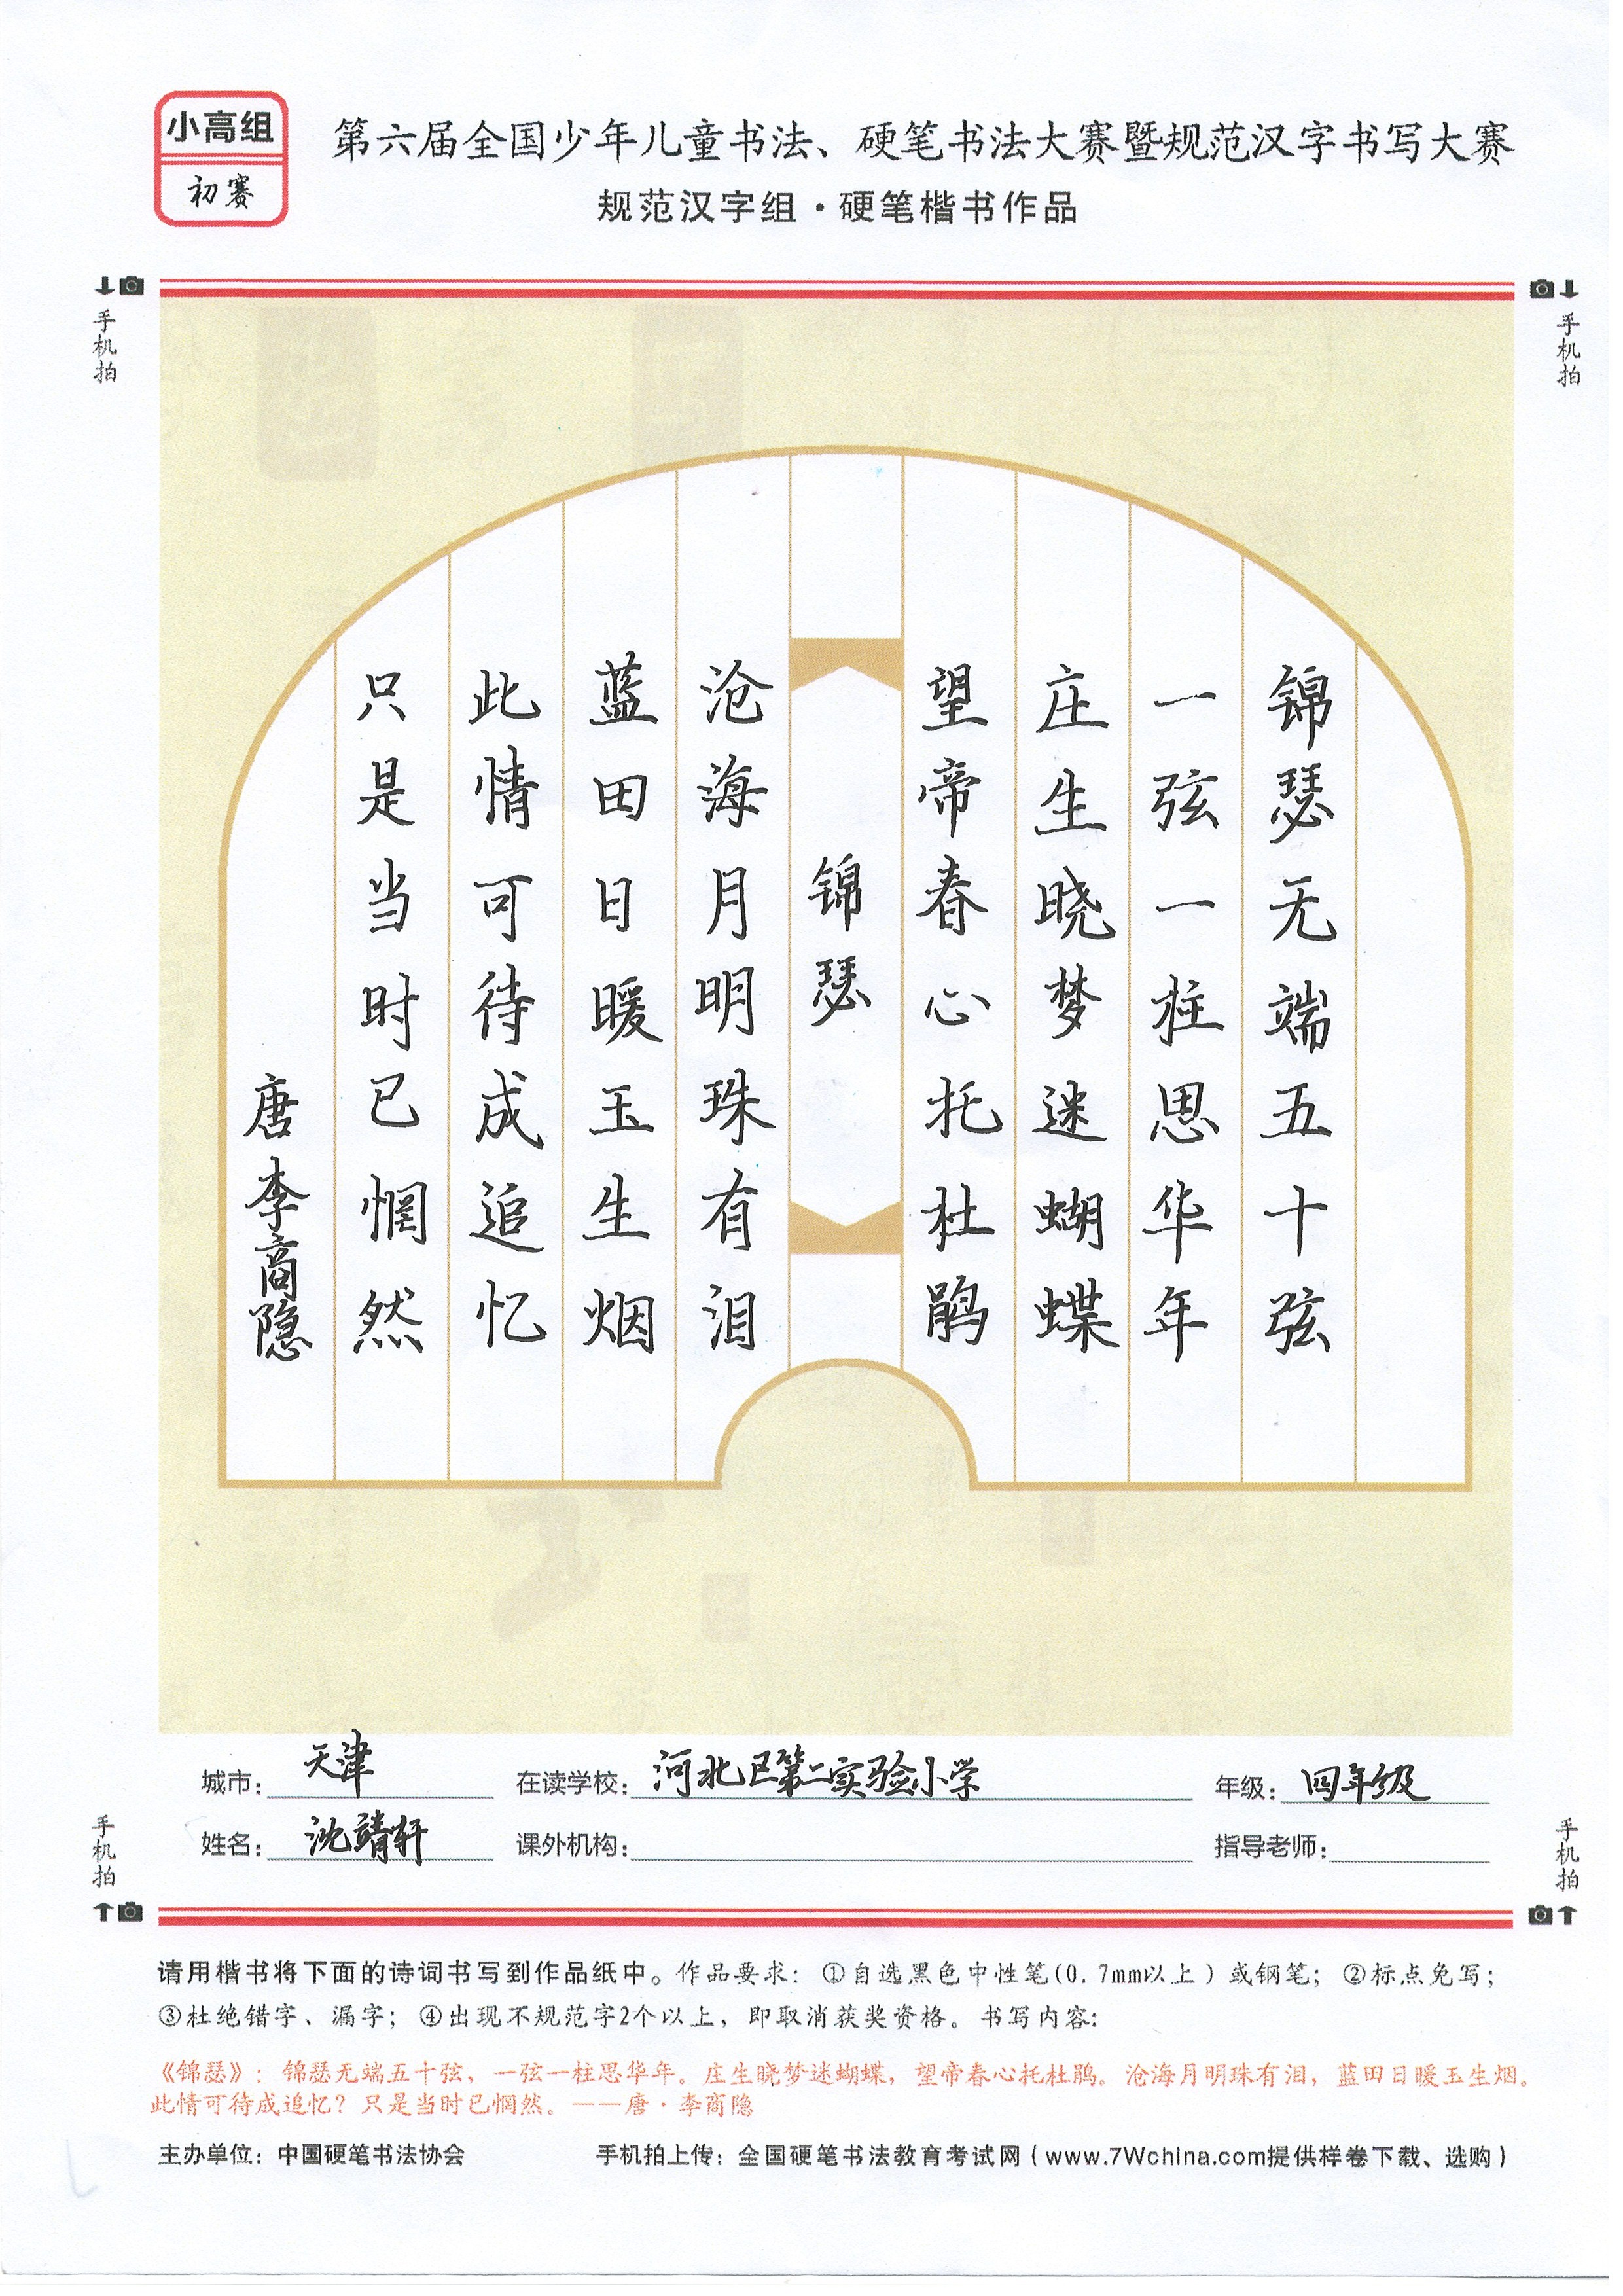 小高组
初赛
第六届全国少年儿童书法、硬笔书法大赛暨规范汉字书写大赛
规范汉字组·硬笔楷书作品
手机拍
手机拍
锦瑟无端五十弦
一弦一柱思华年
庄生晓梦迷蝴蝶
望帝春心托杜鹃
锦瑟
沧海月明珠有泪
蓝田日暖玉生烟
此情可待成追忆
只是当时已惘然
唐李商隐
城市：天津 在读学校：河北区第二实验小学 年级：四年级
姓名：沈靖轩 课外机构： 指导老师：
手机拍
手机拍
请用楷书将下面的诗词书写到作品纸中。作品要求：①自选黑色中性笔(0.7mm以上)或钢笔；②标点免写；
③杜绝错字、漏字；④出现不规范字2个以上，即取消获奖资格。书写内容：
《锦瑟》：锦瑟无端五十弦，一弦一柱思华年。庄生晓梦迷蝴蝶，望帝春心托杜鹃。沧海月明珠有泪，蓝田日暖玉生烟。
此情可待成追忆？只是当时已惘然。——唐·李商隐
主办单位：中国硬笔书法协会 手机拍上传：全国硬笔书法教育考试网（www.7Wchina.com提供样卷下载、选购）